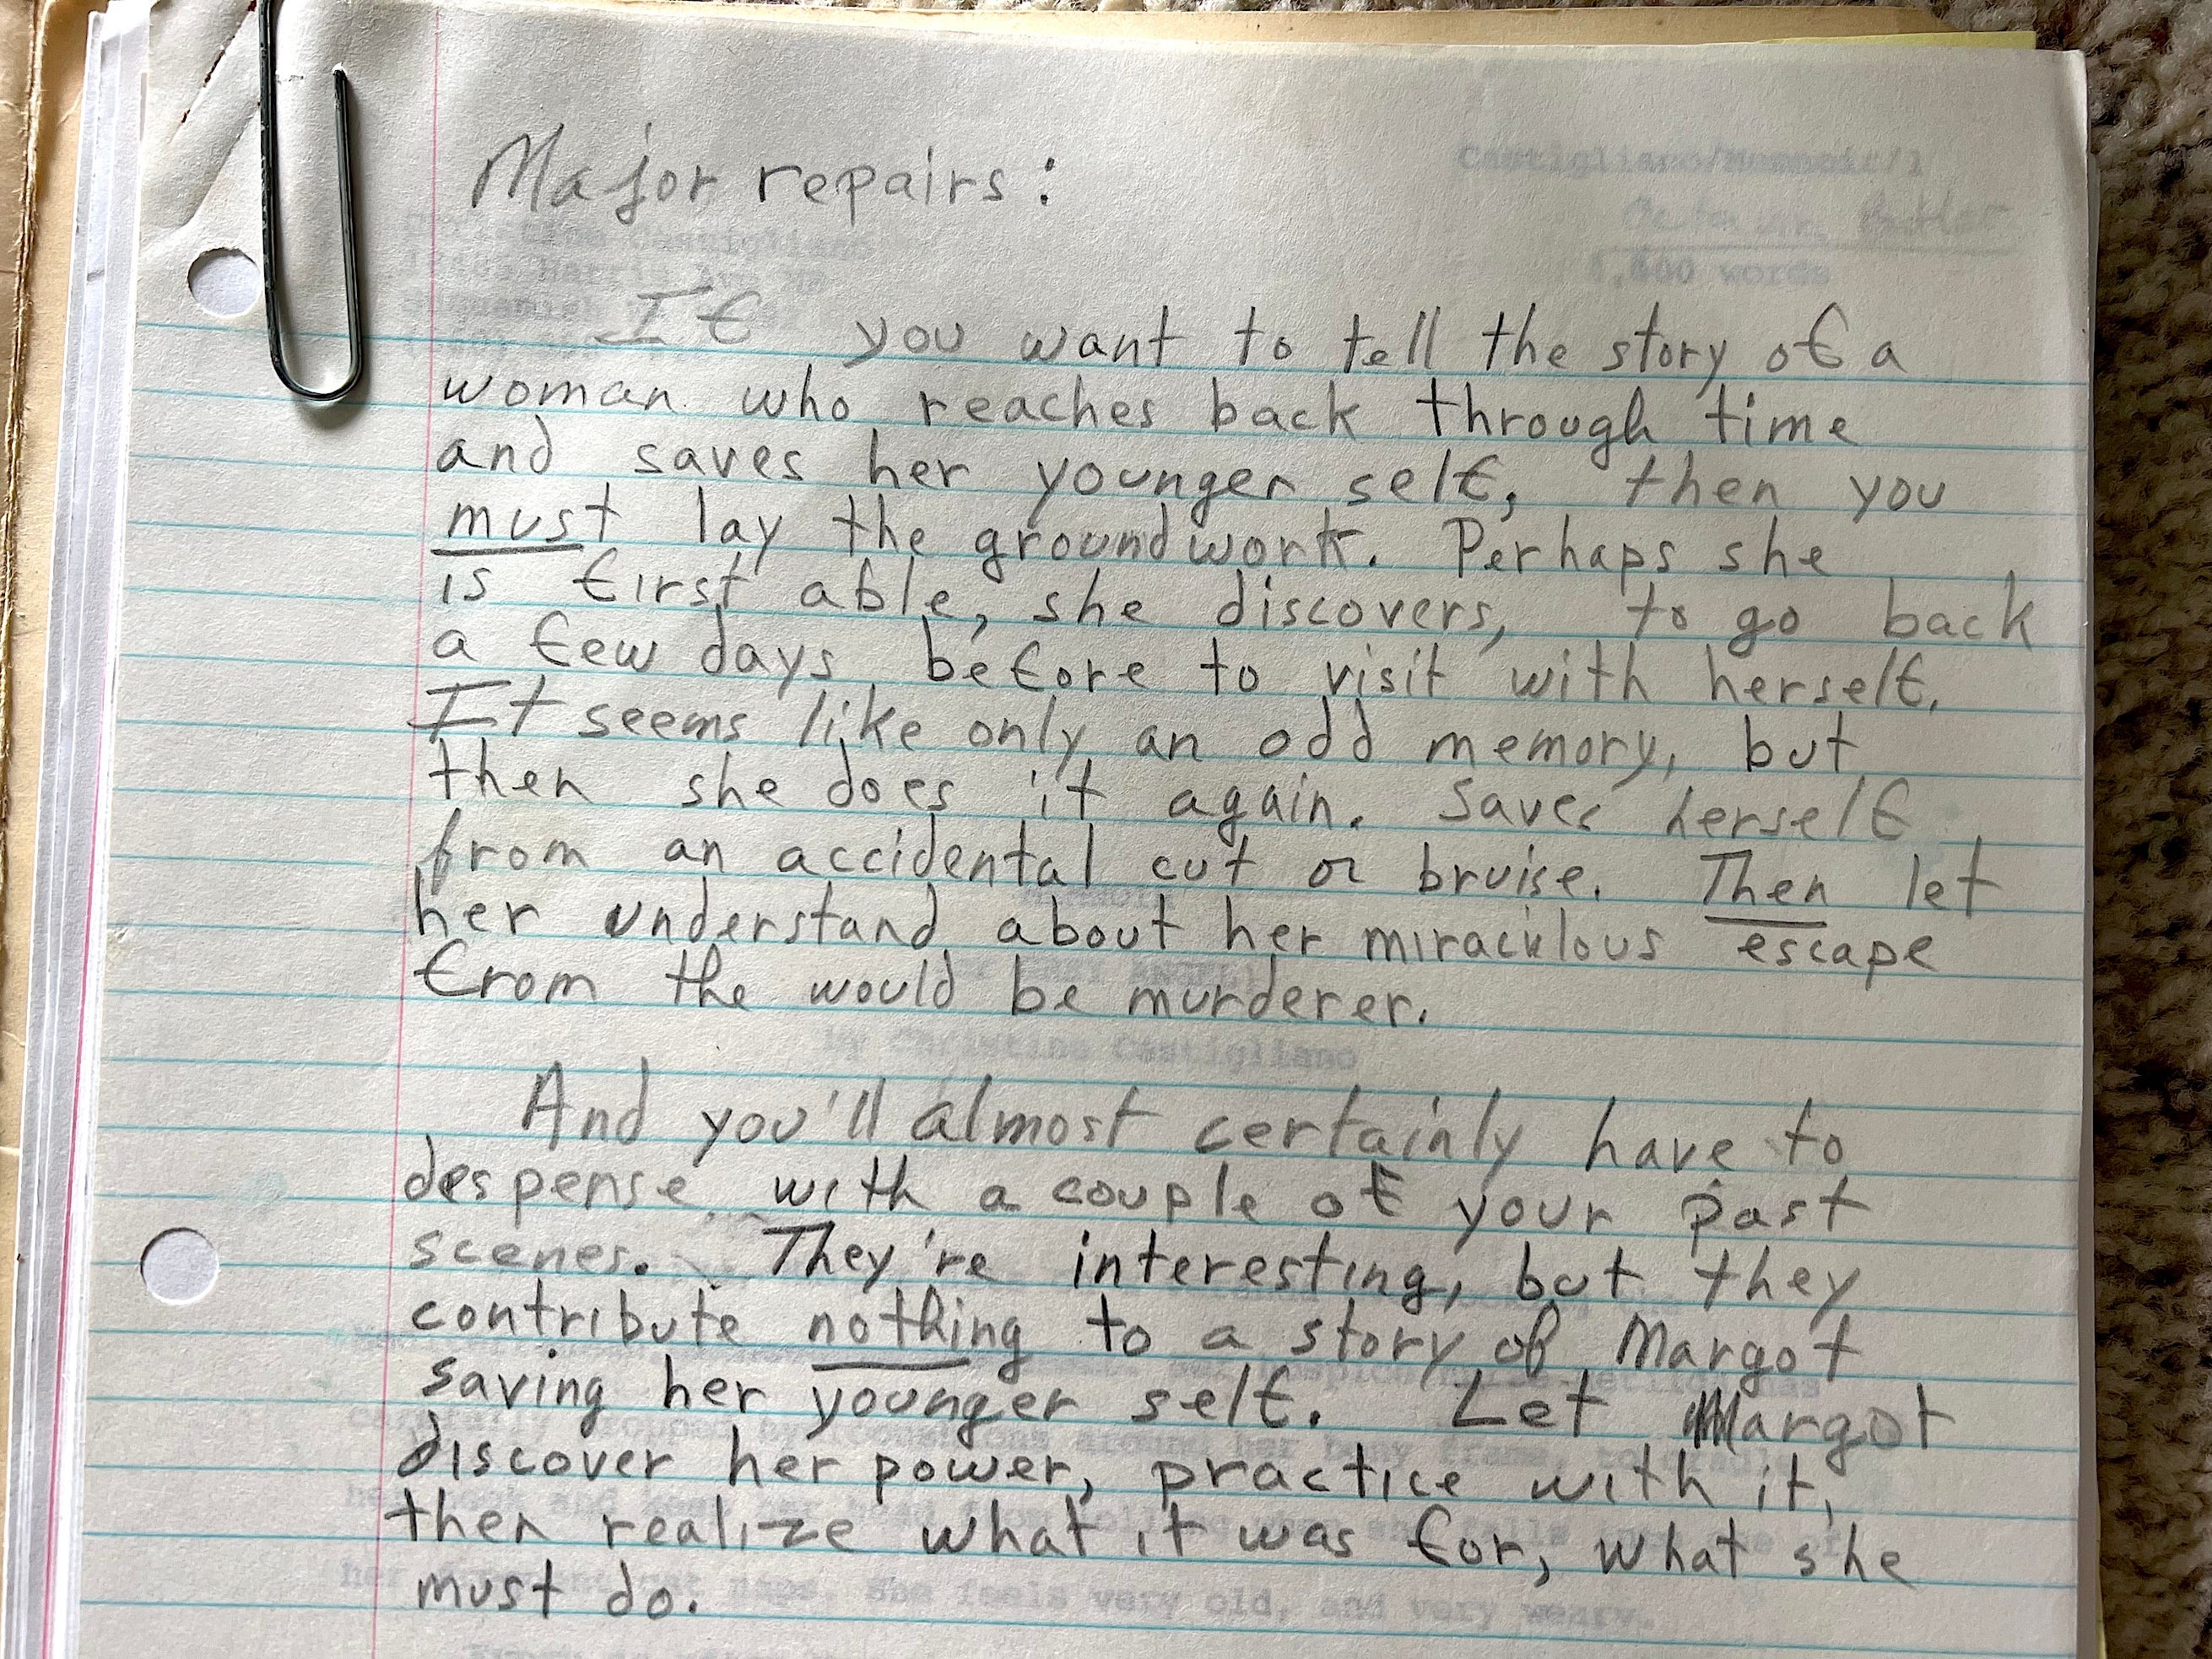 Major repairs:
If you want to tell the story of a
woman who reaches back through time
and saves her younger self, then you
must lay the groundwork. Perhaps she
is first able, she discovers, to go back
a few days before to visit with herself.
It seems like only an odd memory, but
then she does it again. Saves herself
from an accidental cut or bruise. Then let
her understand about her miraculous escape
from the would be murderer.
by Christine Castigliano
And you'll almost certainly have to
despense with a couple of your past
scenes. They're interesting, but they
contribute nothing to a story of Margot
saving her younger self. Let Margot
discover her power, practice with it,
then realize what it was for, what she
must do.